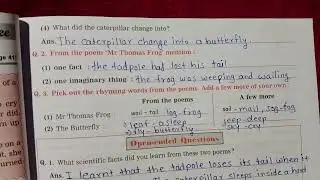 (4) What did the caterpillar change into?
Ans. The caterpillar change into a butterfly.
Q. 2. From the poem 'Mr Thomas Frog' mention :
(1) one fact : the tadpole had lost his tail
(2) one imaginary thing : the frog was weeping and wailing
Q. 3. Pick out the rhyming words from the poems. Add a few more of your own.
From the poems A few more
(1) Mr Thomas Frog wail - tail log - frog sail - mail, fog
(2) The Butterfly leaf - asleep jeep - deep
butterfly cry
Openended Questions
Q. 1. What scientific facts did you learn from these two poems?
Ans. I learnt that the tadpole loses its tail when it
caterpillar sleeps inside a